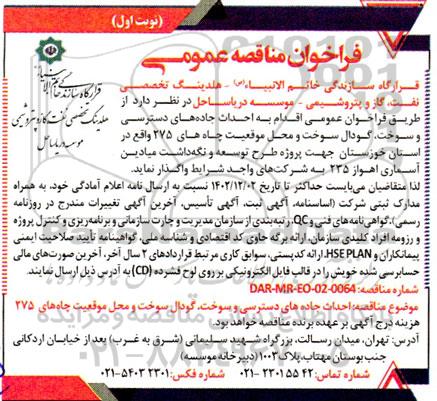 (نوبت اول)
فراخوان مناقصه عمومی
قرارگاه سازندگی خاتم الانبیاء(ص) - هلدینگ تخصصی
نفت، گاز و پتروشیمی - موسسه دریاساحل در نظر دارد از
طریق فراخوان عمومی اقدام به احداث جاده‌های دسترسی
و سوخت، گودال سوخت و محل موقعیت چاه های ۲۷۵ واقع در
استان خوزستان جهت پروژه طرح توسعه و نگه‌داشت میادین
آسماری اهواز ۲۳۵ به شرکت‌های واجد شرایط واگذار نماید.
لذا متقاضیان می‌بایست حداکثر تا تاریخ ۱۴۰۲/۱۲/۰۲ نسبت به ارسال نامه اعلام آمادگی خود، به همراه
مدارک ثبتی شرکت (اساسنامه، آگهی ثبت، آگهی تأسیس، آخرین آگهی تغییرات مندرج در روزنامه
رسمی)،گواهی‌نامه های فنی و QC، رتبه‌بندی از سازمان مدیریت و چارت سازمانی و برنامه‌ریزی و کنترل پروژه
و رزومه افراد کلیدی سازمان، ارائه برگه حاوی کد اقتصادی و شناسه ملی، گواهینامه تأیید صلاحیت ایمنی
پیمانکاران و HSE PLAN، ارائه کدپستی، سوابق کاری مرتبط قراردادهای ۲ سال آخر، آخرین صورت‌های مالی
حسابرسی شده خویش را در قالب فایل الکترونیکی بر روی لوح فشرده (CD) به آدرس ذیل ارسال نمایند.
شماره مناقصه: DAR-MR-EO-02-0064
موضوع مناقصه: احداث جاده های دسترسی و سوخت، گودال سوخت و محل موقعیت چاه‌های ۲۷۵
هزینه درج آگهی بر عهده برنده مناقصه خواهد بود.
آدرس: تهران، میدان رسالت، بزرگراه شهید سلیمانی (شرق به غرب) بعد از خیابان اردکانی
جنب بوستان مهتاب، پلاک ۱۰۰۳ (دبیرخانه موسسه)
شماره تماس: ۴۲ ۵۵ ۲۲۰۱ -۰۲۱ شماره فکس: ۲۳۰۱ ۵۴۰۳-۰۲۱